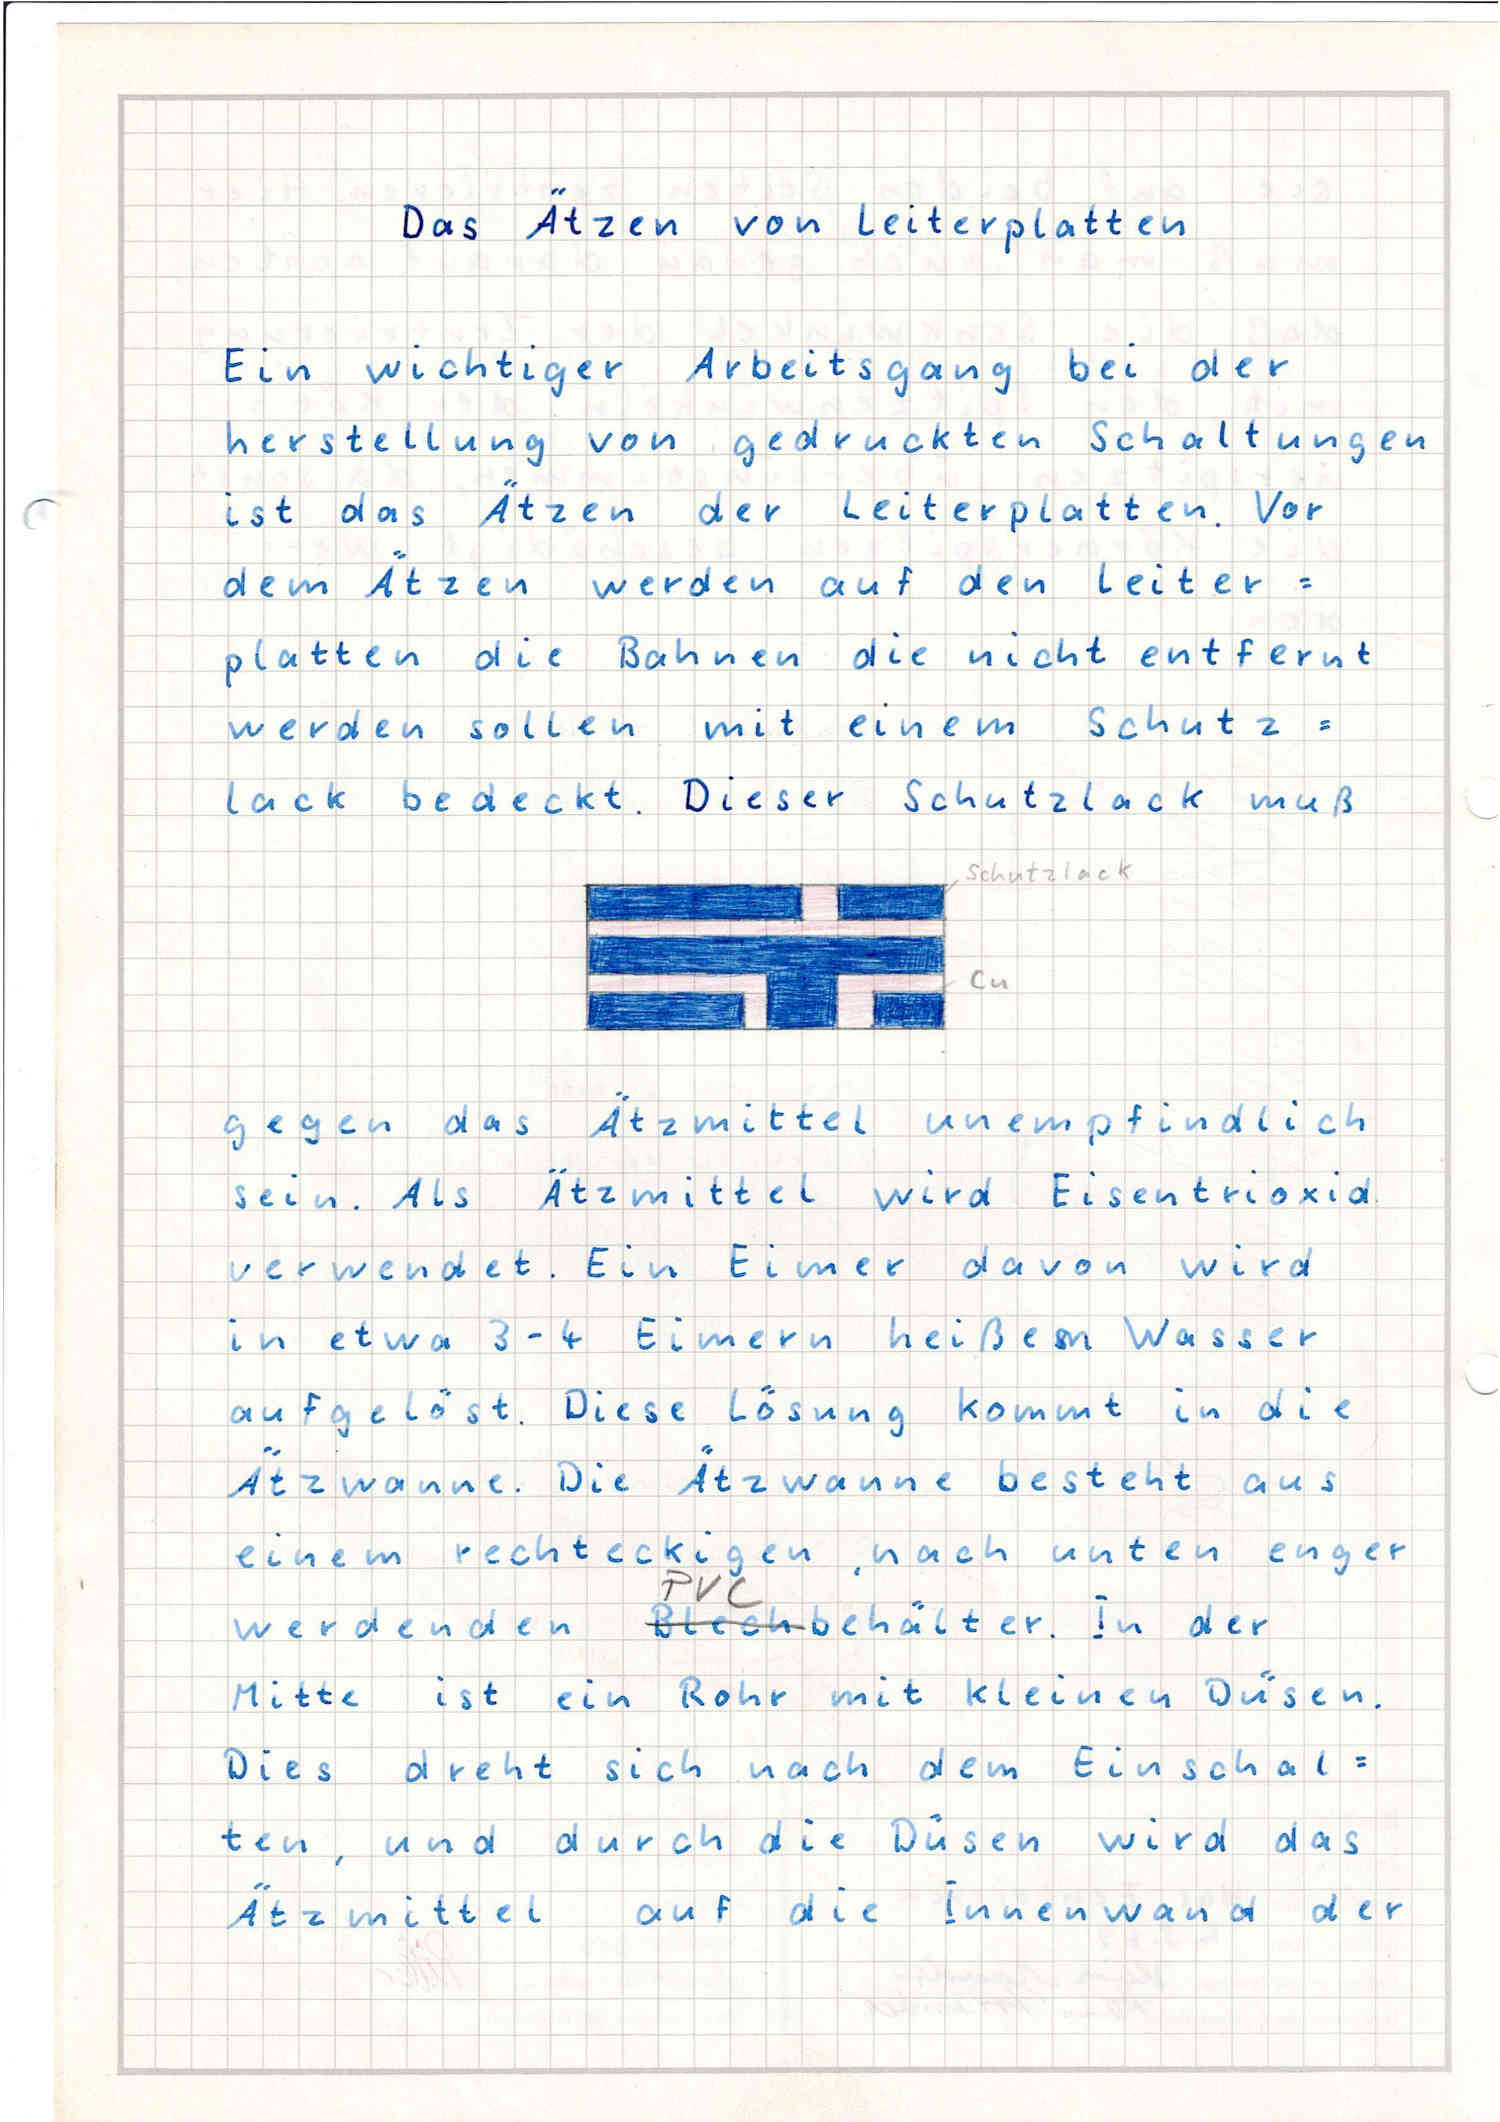 Das Ätzen von Leiterplatten
Ein wichtiger Arbeitsgang bei der
herstellung von gedruckten Schaltungen
ist das Ätzen der Leiterplatten. Vor
dem Ätzen werden auf den Leiter=
platten die Bahnen die nicht entfernt
werden sollen mit einem Schutz=
lack bedeckt. Dieser Schutzlack muß
Schutzlack
Cu
gegen das Ätzmittel unempfindlich
sein. Als Ätzmittel wird Eisentrioxid
verwendet. Ein Eimer davon wird
in etwa 3-4 Eimern heißem Wasser
aufgelöst. Diese Lösung kommt in die
Ätzwanne. Die Ätzwanne besteht aus
einem rechteckigen, nach unten enger
PVC
werdenden Blechbehälter. In der
Mitte ist ein Rohr mit kleinen Düsen.
Dies dreht sich nach dem Einschal=
ten, und durch die Düsen wird das
Ätzmittel auf die Innenwand der